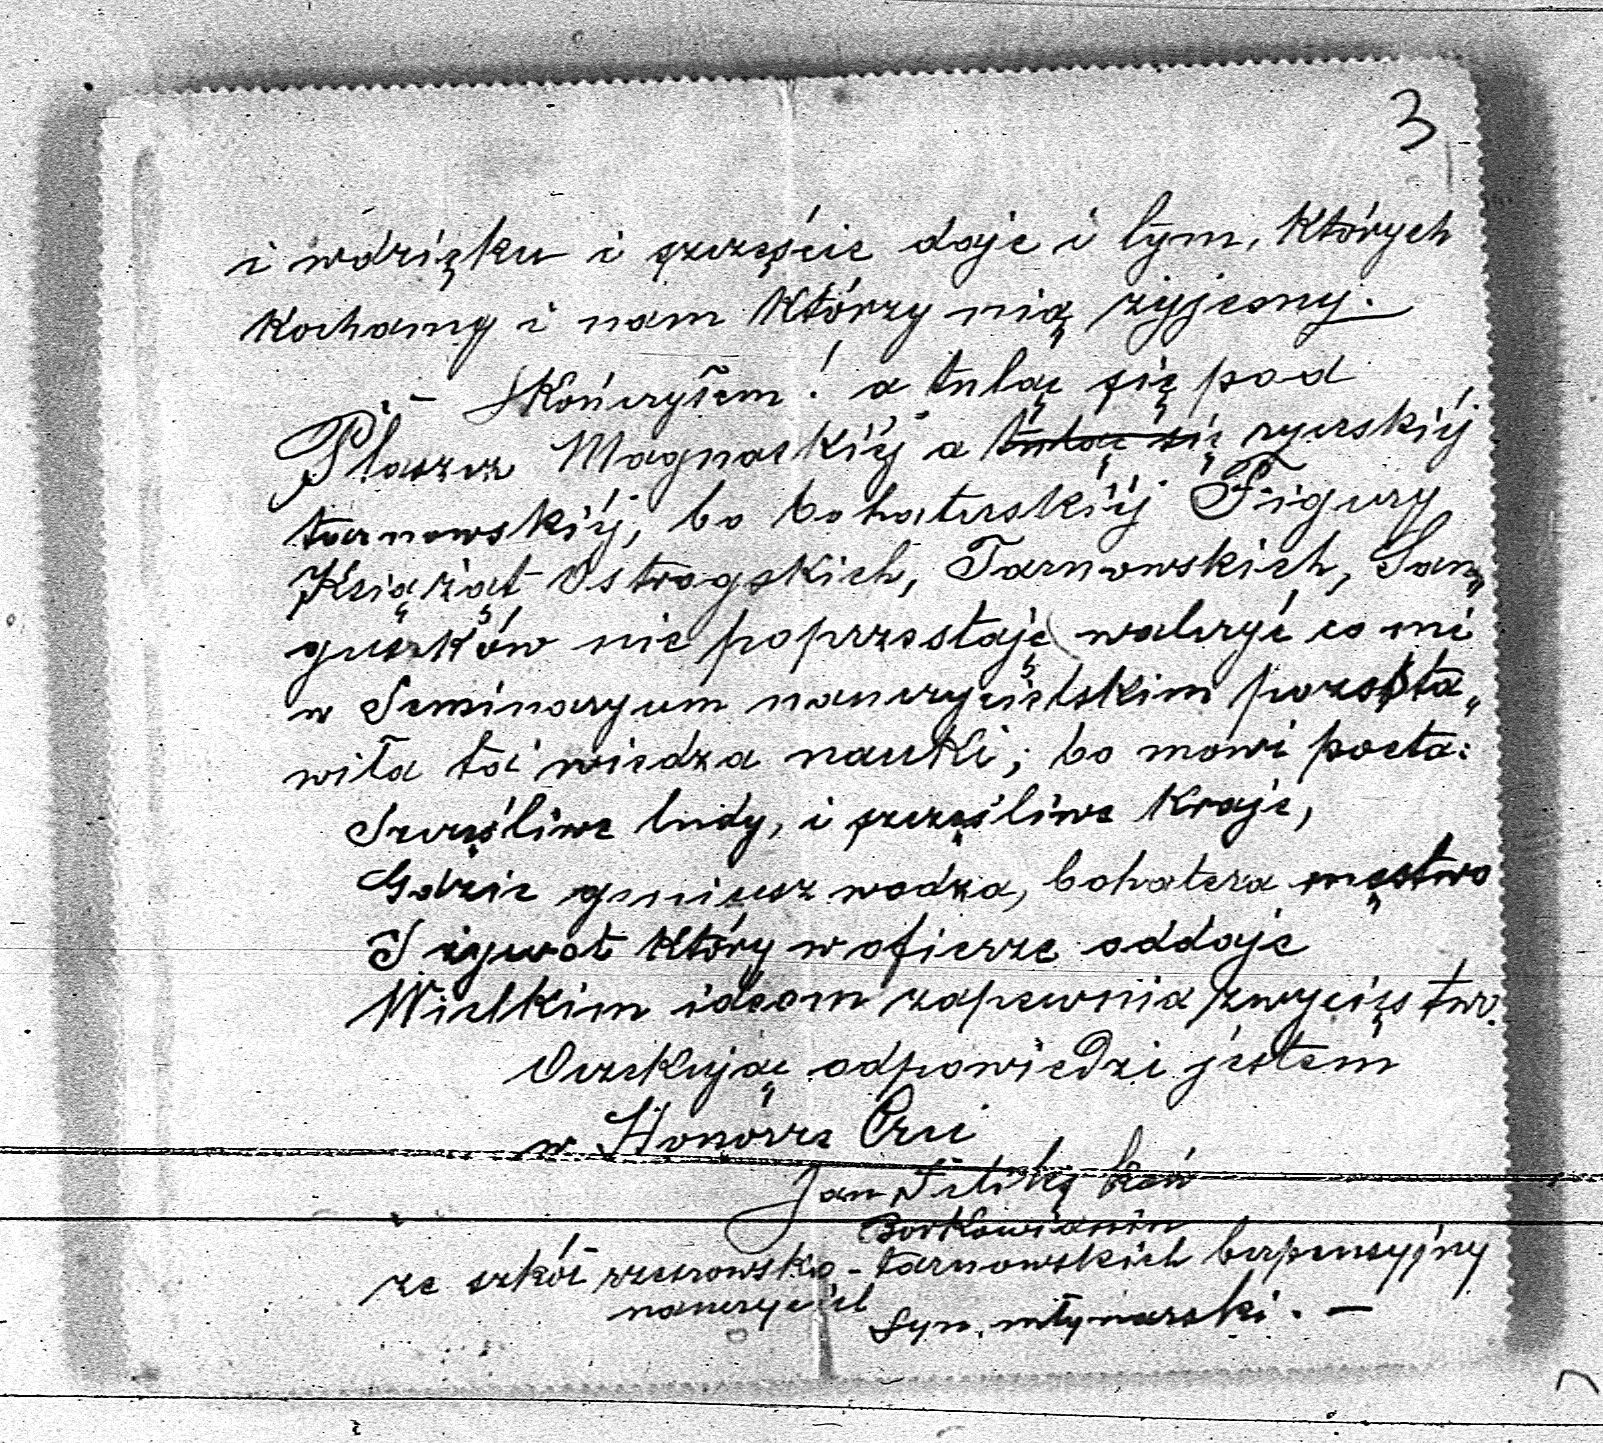 3
i wdzięku i szczęście daje i tym, których
kochamy i nam którzy nią żyjemy.
Skończyłem! a tuląc się pod
Płaszcz Magnackiéj a tuląc się rycerskiéj
tarnowskiéj, bo bohaterskiéj Figury
Książąt Ostrogskich, Tarnowskich, San„
guszków nie poprzestaję walczyć co mi
w Seminaryum nauczycielskim pozosta„
wiła ta wiedza nauki; bo mowi poeta:
Szczęśliwe ludy, i szczęśliwe kraje,
Gdzie geniusz wodza, bohatera męstwo
I żywot który w ofierze oddaje
Wielkim ideom zapewnia zwycięstwo.
Oczekując odpowiedzi jestem
w Honorze Czci
Jan
Borkowianin
ze szkół rzeszowsko-tarnowskich bezpensyjny
nauczyciel
Syn młynarski. —